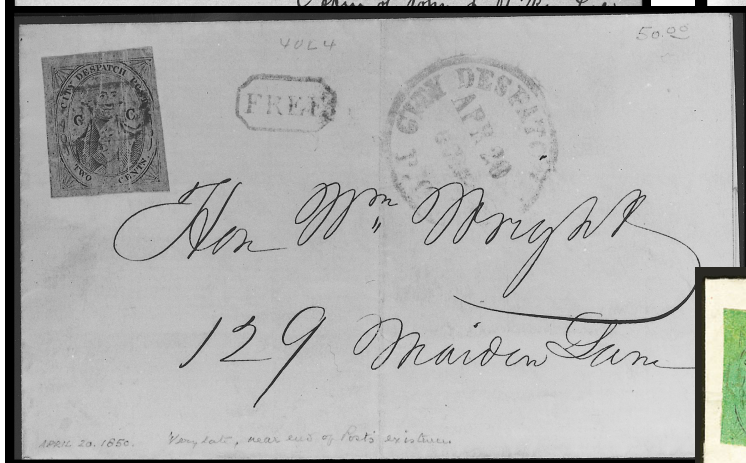 40L4
50.00
CITY DESPATCH POST
C C
TWO CENTS
FREE
CITY DESPATCH
APR 20
Hon Wm Wright
129 Maiden Lane
APRIL 20, 1850. Very late, near end of Post's existence